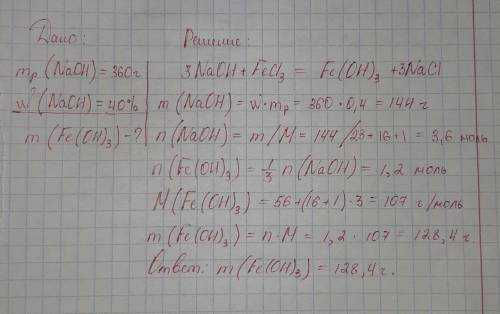 Дано:
mр (NaOH) = 360г
w (NaOH) = 40%
m (Fe(OH)₃) - ?
Решение:
3NaOH + FeCl₃ = Fe(OH)₃ + 3NaCl
m (NaOH) = w · mр = 360 · 0,4 = 144 г
n (NaOH) = m/M = 144/23+16+1 = 3,6 моль
n (Fe(OH)₃) = 1/3 n (NaOH) = 1,2 моль
M (Fe(OH)₃) = 56+(16+1)·3 = 107 г/моль
m (Fe(OH)₃) = n · M = 1,2 · 107 = 128,4 г.
Ответ: m (Fe(OH)₃) = 128,4 г.